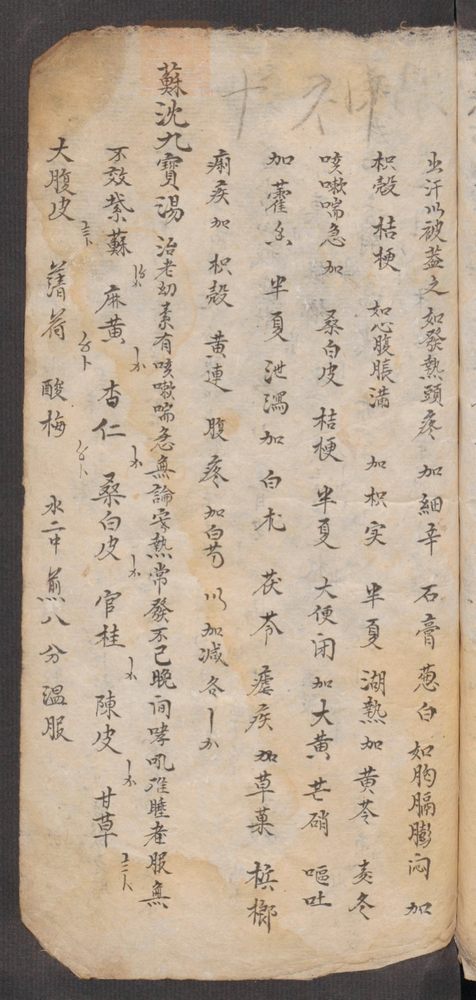 十神
出汗以被蓋之 如發熱頭疼 加細辛 石膏 葱白 如胸膈膨闷 加
枳殼 桔梗 如心腹脹满 加枳实 半夏 湖熱加黄芩 麦冬
咳嗽喘急加 桑白皮 桔梗 半夏 大便闭加大黄 芒硝 嘔吐
加藿香 半夏 泄瀉加白朮 茯苓 瘧疾加草菓 槟榔
痢疾加枳殼 黄連 腹疼加白芍 以加减各
蘇沈九寳湯 治老幼素有咳嗽喘急無論寒熱常發不已晚间哮吼难睡者服無
不效紫蘇 麻黄 杏仁 桑白皮 官桂 陳皮 甘草
大腹皮 薄荷 酸梅 水二中煎八分温服